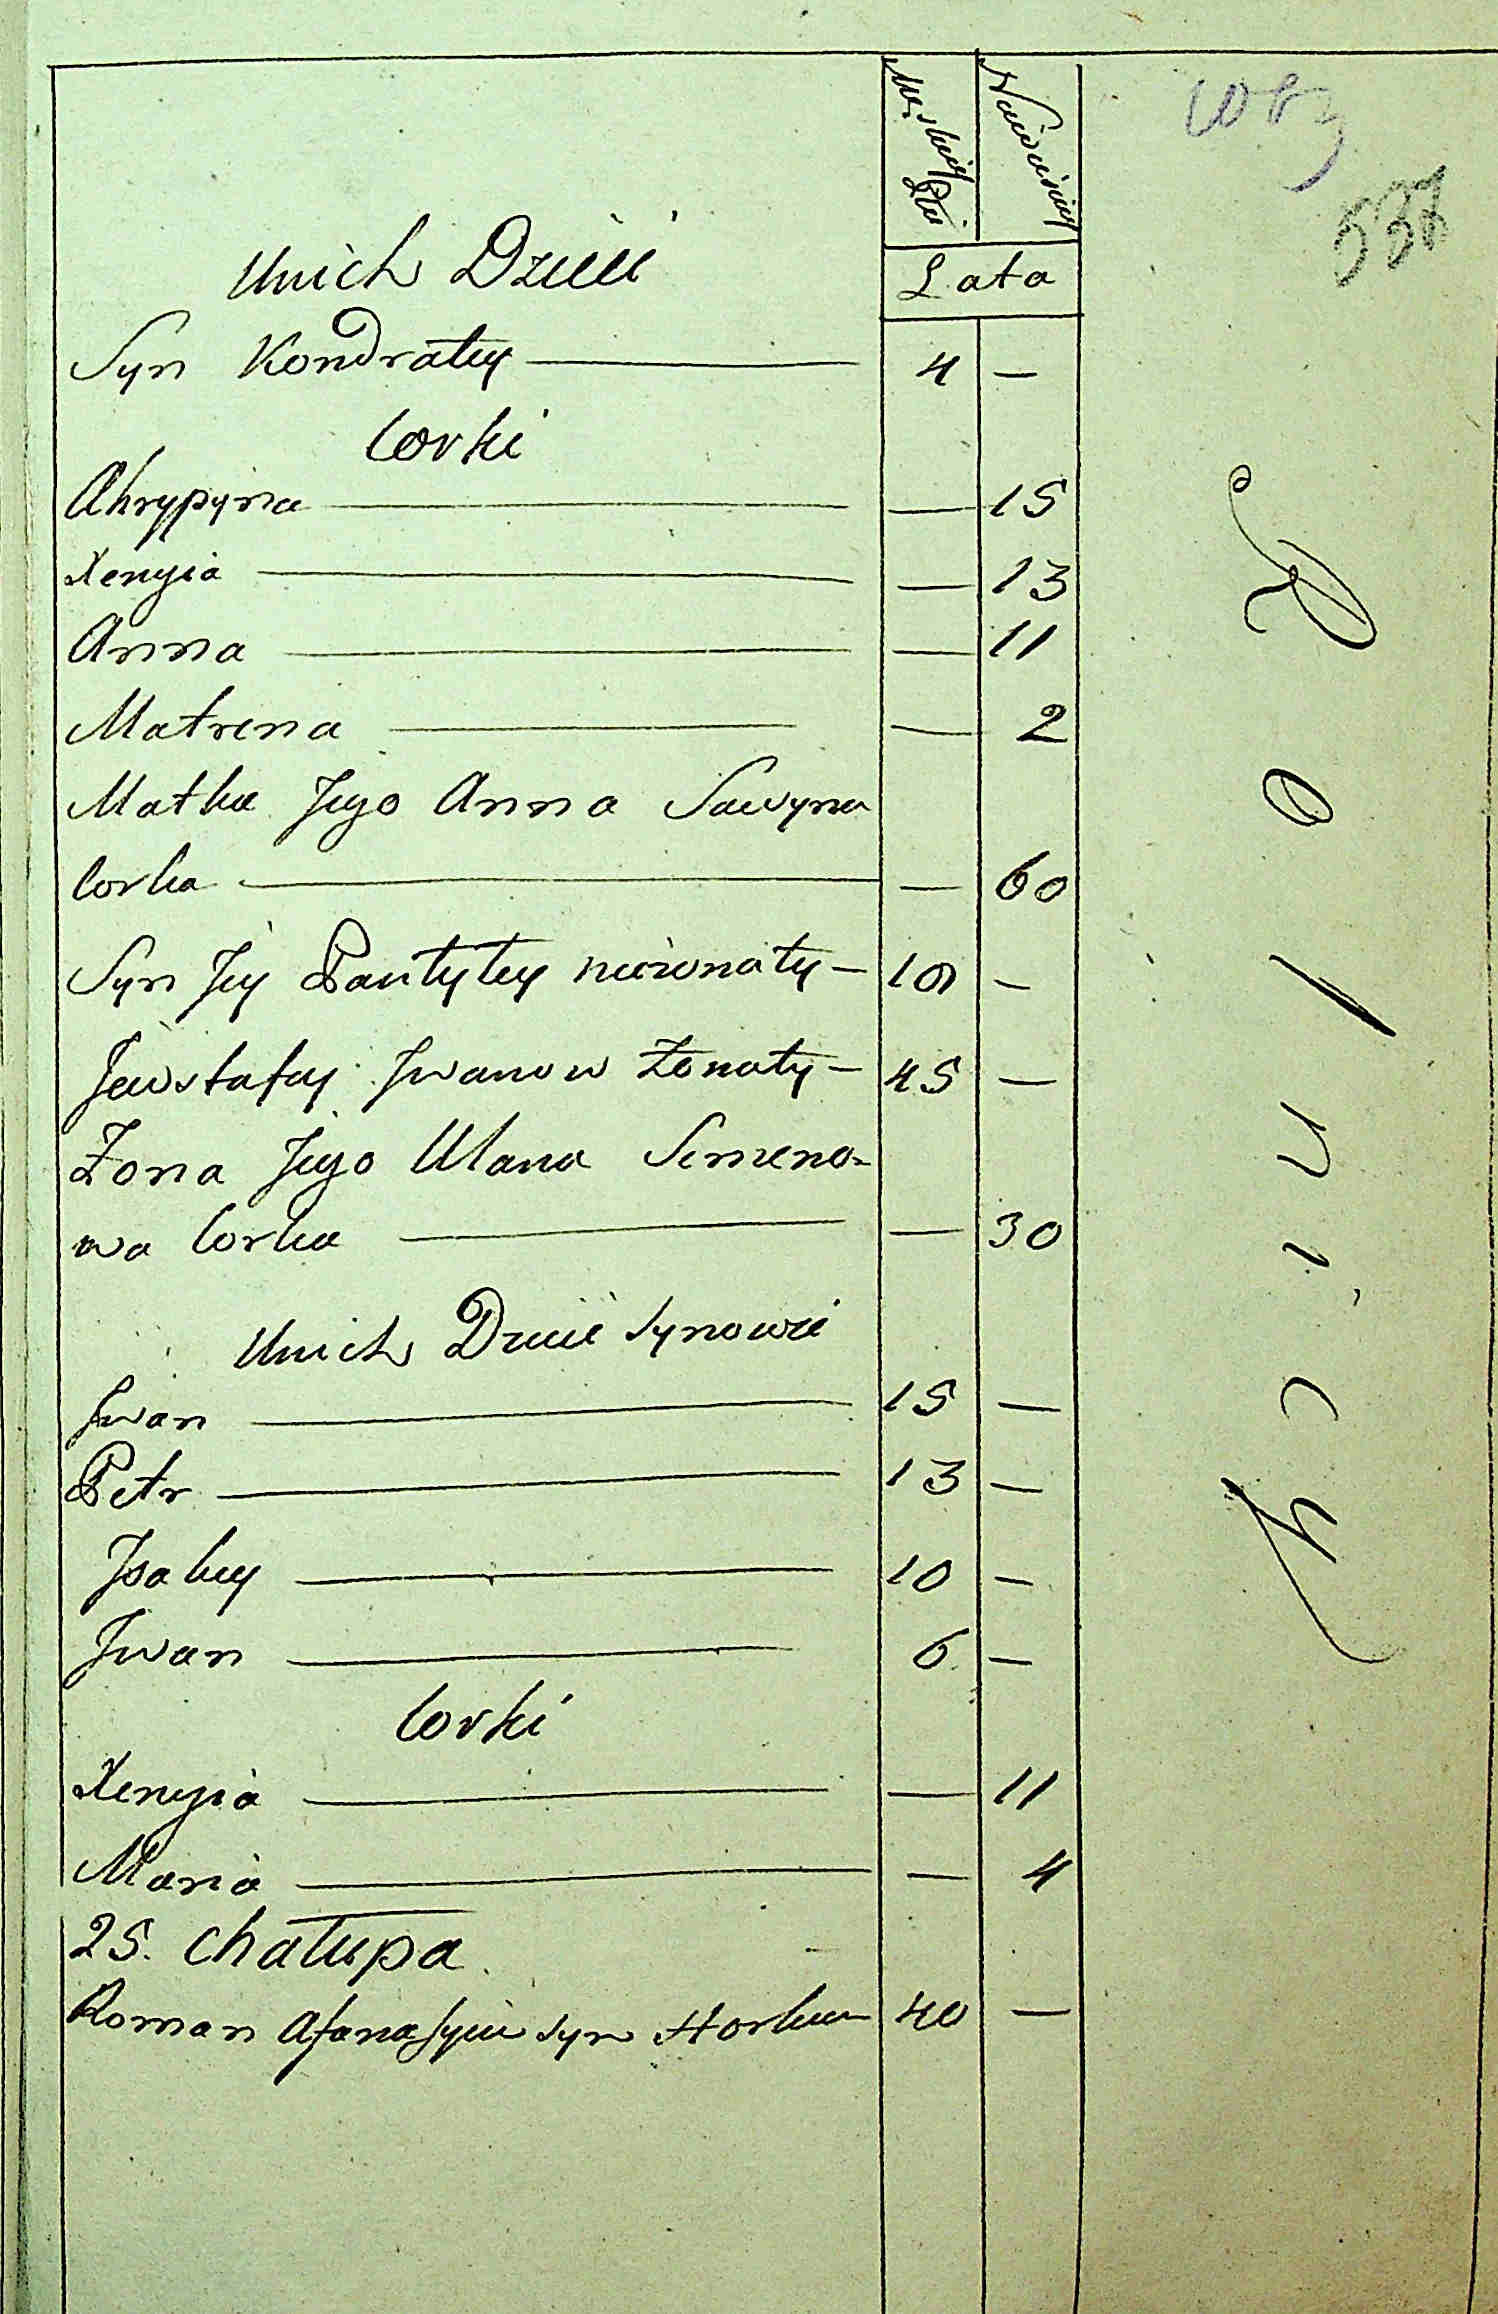 Męskiey Płci
Niewieściey
1083
538
Lata
Unich Dzieci
Syn Kondratey 4 —
Corki
Ahrypyna — 15
Xenyia — 13
Anna — 11
Matrena — 2
Matka Jego Anna Sawyna
Corka — 60
Syn Jey Pantyley nieżonaty — 19 —
Jewstafey Iwanow Żonaty — 45 —
Żona Jego Ulana Semeno-
wa Corka — 30
Unich Dzieci Synowie
Iwan 15 —
Petr 13 —
Isakey 10 —
Iwan 6 —
Corki
Xenyia — 11
Maria — 4
25. Chałupa
Roman Afanasyiw syn 40 —